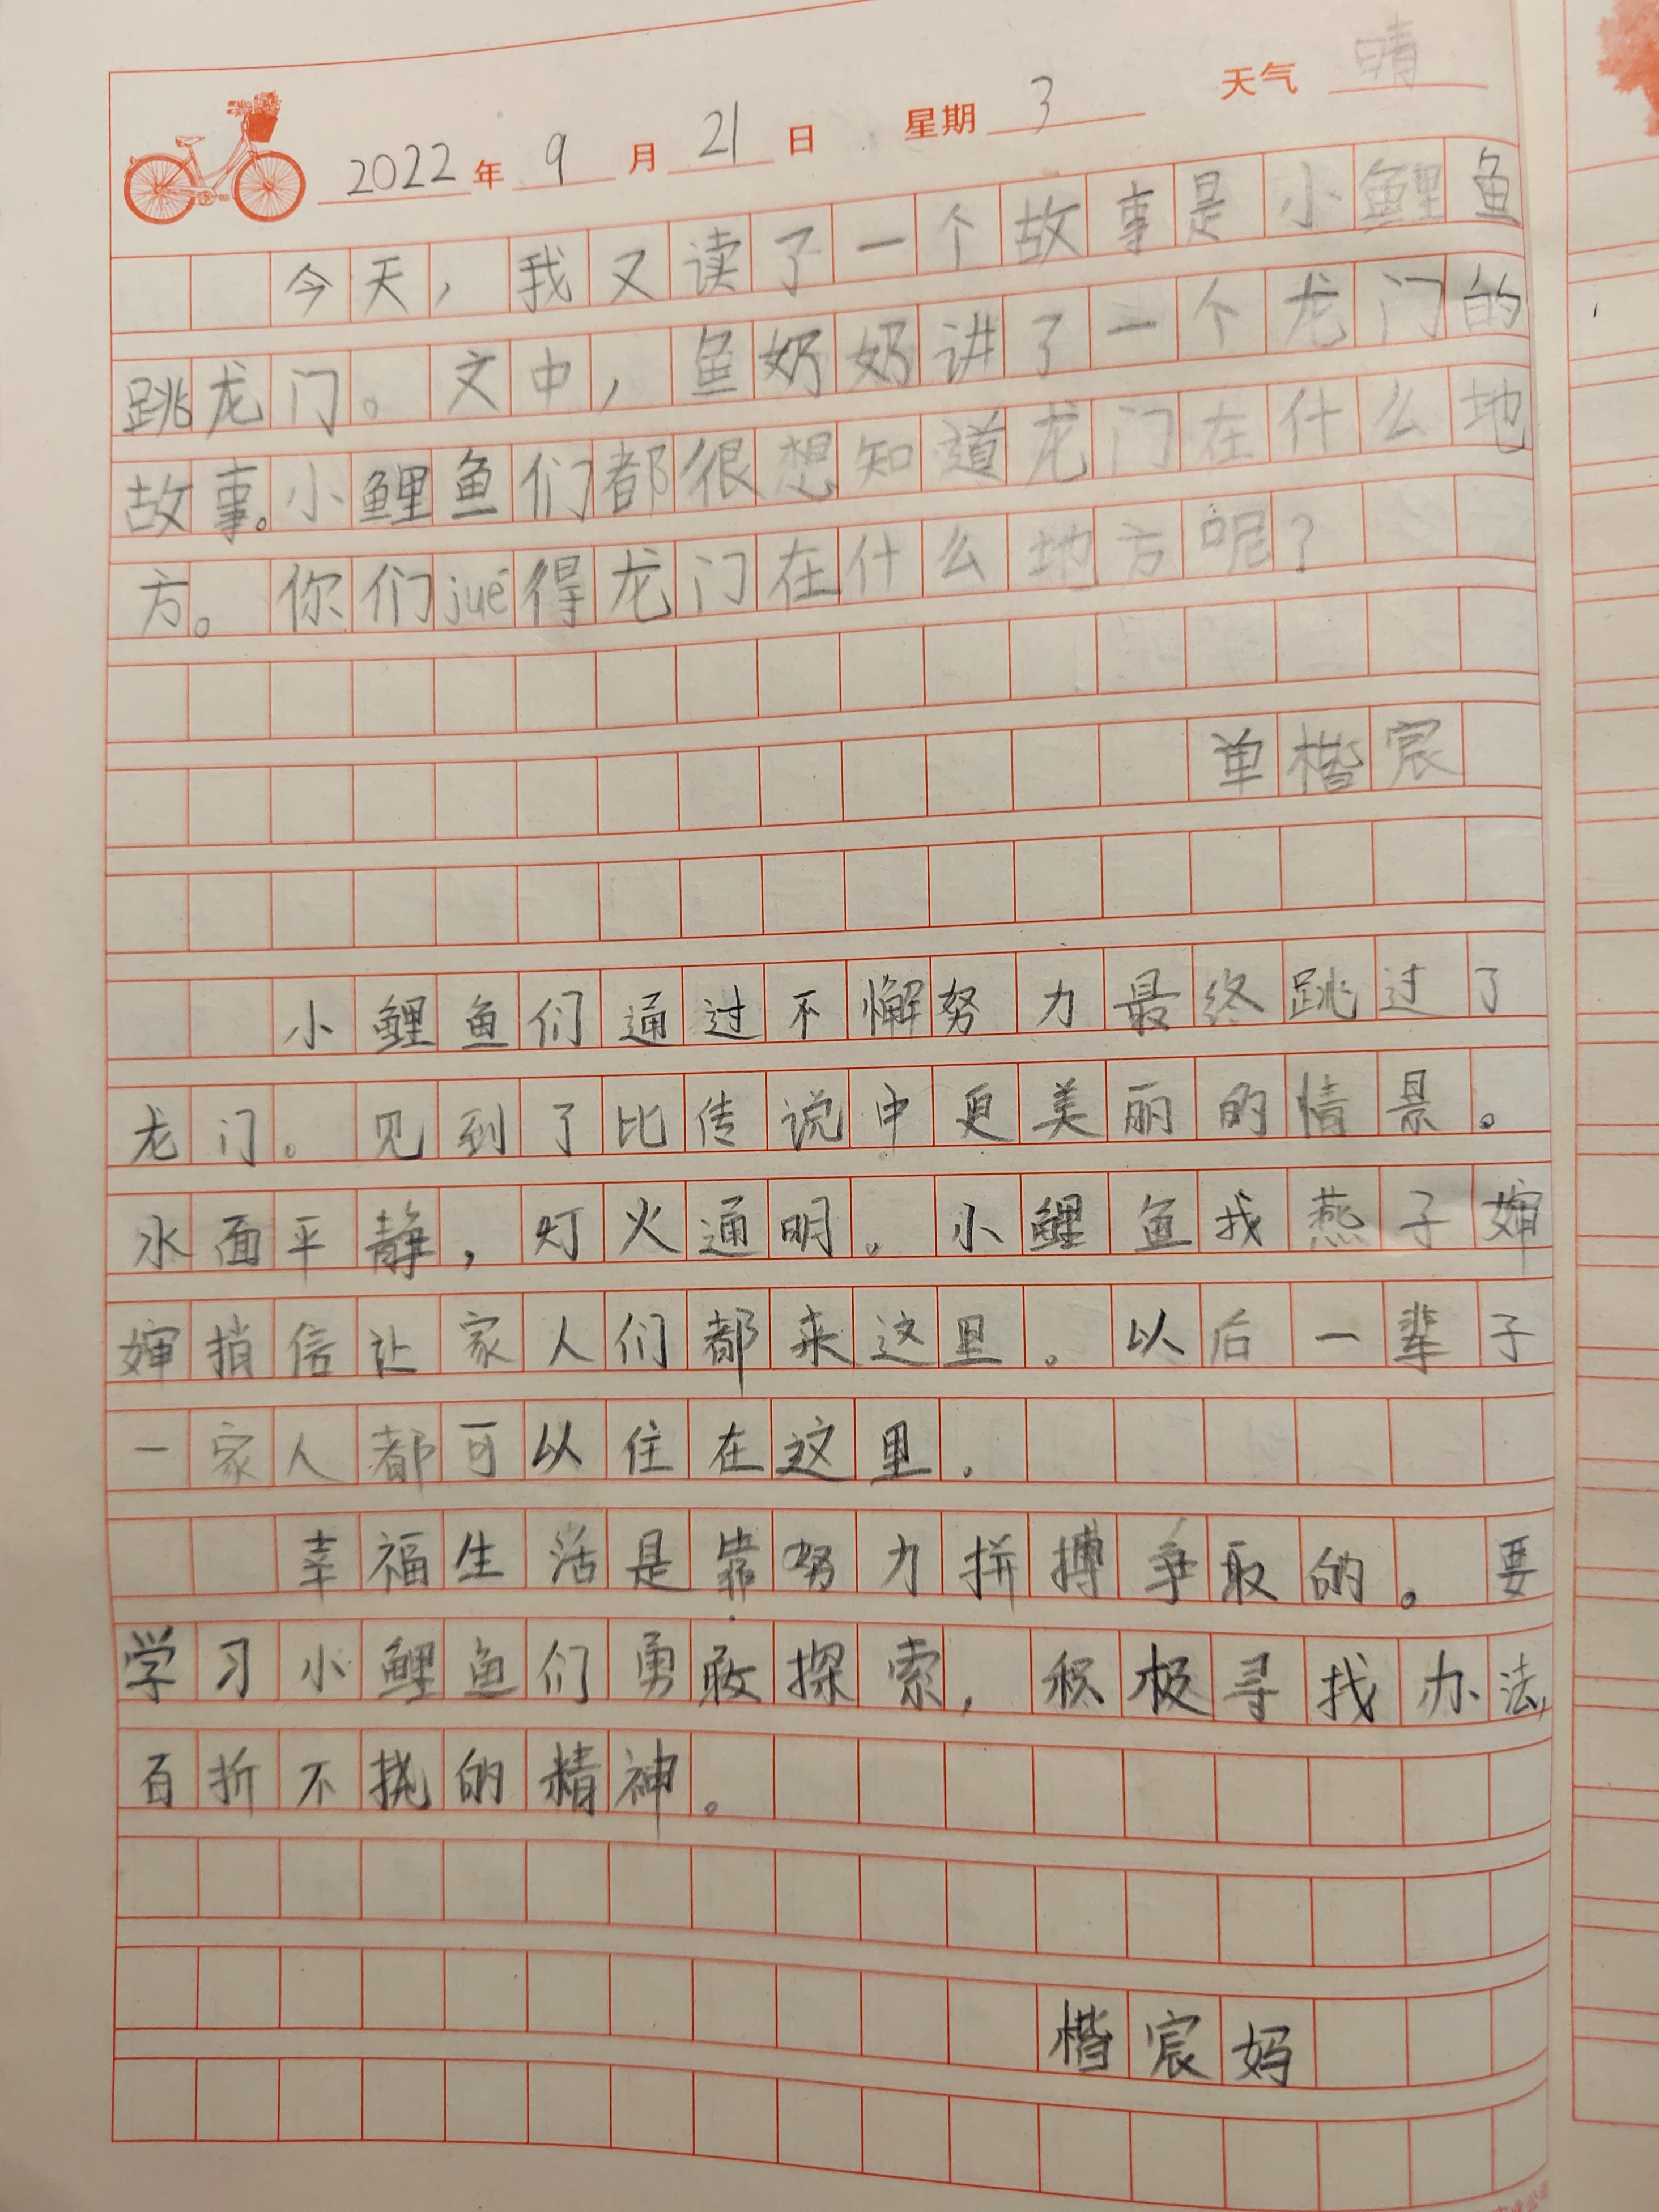 2022年9月21日 星期3 天气晴
今天，我又读了一个故事是小鲤鱼
跳龙门。文中，鱼奶奶讲了一个龙门的
故事。小鲤鱼们都很想知道龙门在什么地
方。你们jué得龙门在什么地方呢？
单楷宸
小鲤鱼们通过不懈努力最终跳过了
龙门。见到了比传说中更美丽的情景。
水面平静，灯火通明。小鲤鱼找燕子婶
婶捎信让家人们都来这里。以后一辈子
一家人都可以住在这里。
幸福生活是靠努力拼搏争取的。要
学习小鲤鱼们勇敢探索，积极寻找办法，
百折不挠的精神。
楷宸妈